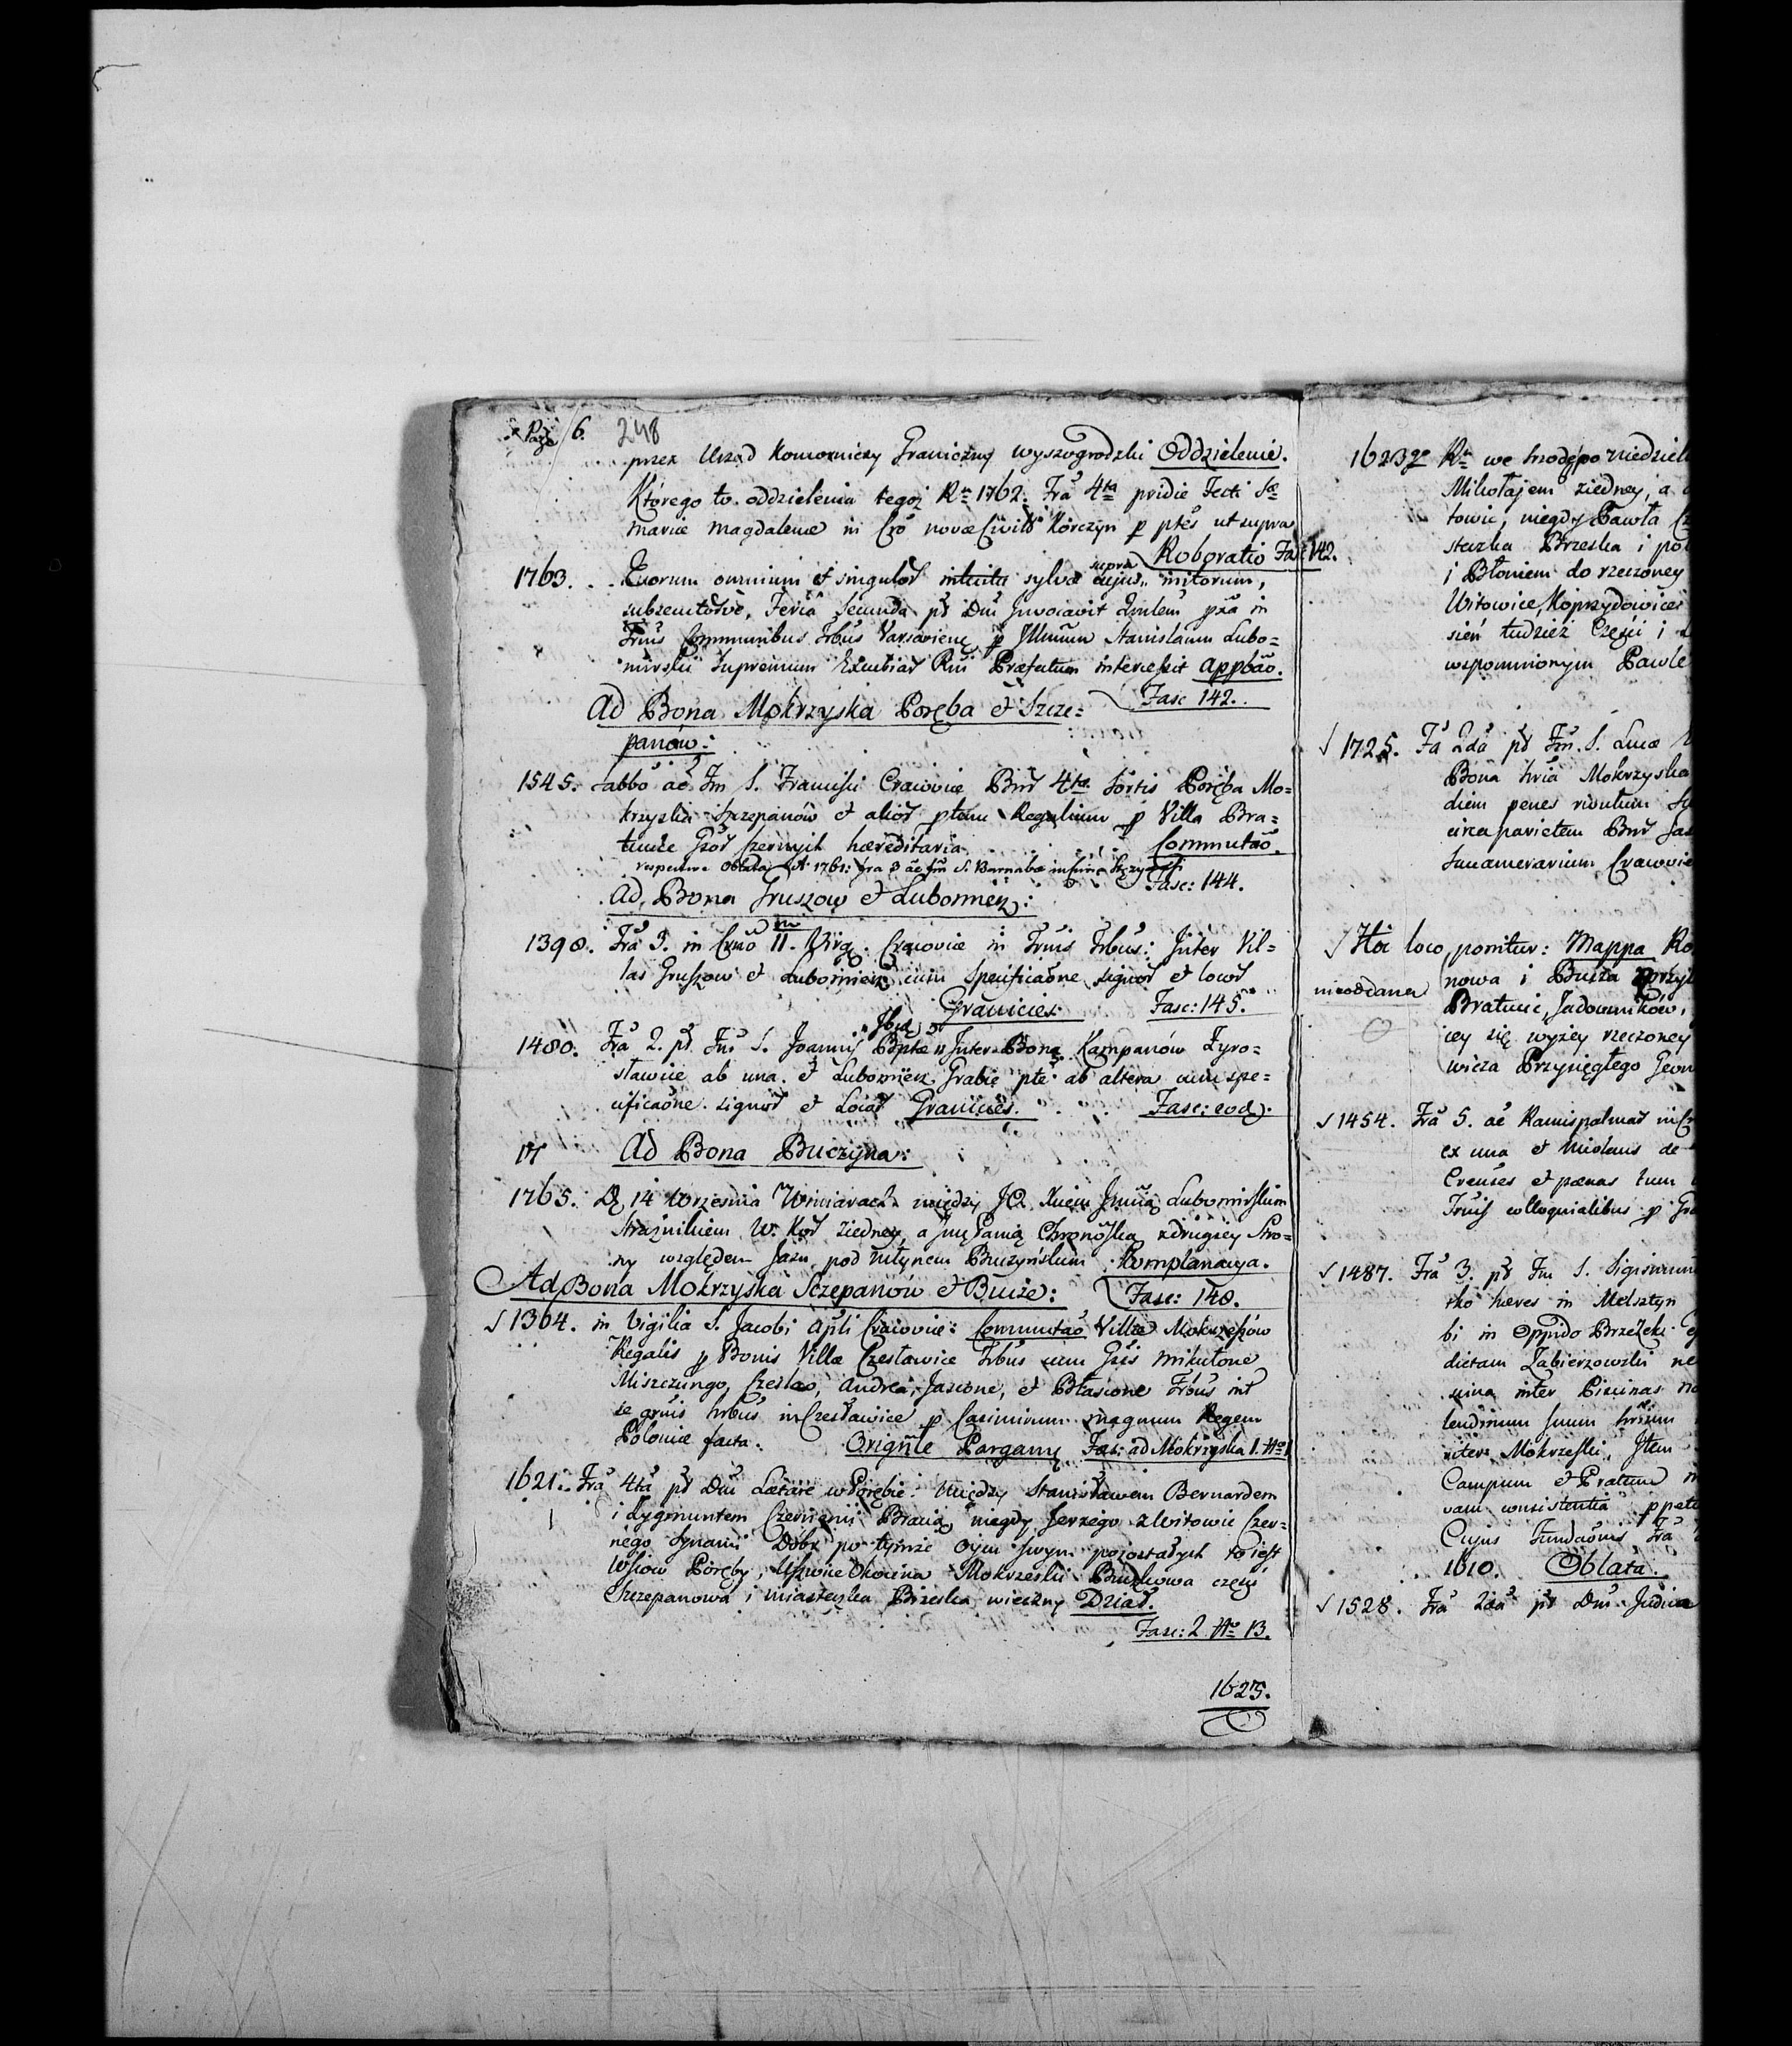 Pag 6. 248
przez Urząd Komorniczy Graniczny wyszogrodzki Oddzielenie.
Którego to oddzielenia tegoż Rn 1762. Fra 4ta pridie Festi Sæ
mariæ magdalenæ in Cro novæ Civitis Korczyn p ptes ut supra
Roboratio Fasc 142.
1763. Quorum omnium et singulor intuitu sylvæ cujus supra initorum,
subsecutorve, Feria secunda pt Dm Invocavit in
Truis Communibus Trbus Varsavieng p Illmum Stanislaum Lubo=
mirski Supremum Excubiar Rni Præfatum intercessit Appbao.
Fasc 142.
Ad Bona Mokrzyska Poręba et Szcze=
panów:
1545. Sabbo ae Fm S. Francisci Cracoviæ Bnr 4tæ Sortis Poręba Mo=
krzyska Szczepanów et alior ptem Regalium p Villa Bra=
tucice Gsor Czernych hæreditaria Commutao.
respective Oblata A 1761: fra 3 ae fm S. Barnabæ in
Fasc: 144.
Ad Bona Gruszow et Lubomierz:
1398. Fra 3. in Crno 11. m Virg. Cracoviæ in Truis Trbus: Inter Vil=
las Gruszow et Lubomierz cum specificaone signor et locor
Granicies. Fasc: 145.
1480. Fra 2. pt Fm S. Joannis Bptæ Ibid Inter Bona Kampanów Zyro=
sławice ab una. et Lubomierz Grabie pte ab altera cum spe=
cificaone signor et Locor Granicies. Fasc: eod.
Ad Bona Buczyna:
1765. D 14 Września między JO. Xciem Jmcią Lubomirskim
Strażnikiem W. Kor zjedney, a Jmę Panią Chronoską zdrugiey Stro=
ny względem Jazu pod młynem Buczyńskim Komplanacya.
Fasc: 148.
Ad Bona Mokrzyska Sczepanów et Bucze:
1364. in Vigilia S. Jacobi Apli Cracoviæ: Commutao Villæ Mokrzesów
Regalis p Bonis Villæ Czesławice Trbus cum Gsis Mikułone
Miszczungo, Czeslao, Andrea, Jascone, et Błasione Frbus int
se gnis hrbus in Czesławice p Casimirum magnum Regem
Poloniæ facta. Orignle Pargamę Fas: ad Mokrzyska 1. No 1
1621. Fra 4ta pt Dm Lætare w Porębie. między Stanisławem Bernardem
i Zygmuntem Czernemi Bracią niegdy Jerzego z Witowic Czer=
nego Synami Dóbr po tymże oycu swym pozostałych to iest
Wsiow Poręby, Uszwie Okocina Mokrzeski Buczkowa część
Szczepanowa i miasteczka Brzeska wieczny Dział.
Fasc: 2 No 13.
1623.
1623go Rn we srodę po niedziel
Mikołajem ziedney, a
towic, niegdy Pawła
steczka Brzeska i po
i Błoniem do rzeczoney
Witowice, Koprzydowices
sień tudzież Części i
wspomnionym Pawle
1725. Fa 2da pt Fm. S. Lucæ
Bona hria Mokrzyska
diem penes rivulum
circa parietem Bnr
Succamerarium Cracovie
Hoc loco ponitur: Mappa
nowa i Bucza przy
nieoddana
Bratucic, Jadownikow,
cey się wyżey rzeczoney
wicza Przysięgłego Geom
1454. Fra 5. ae Ramispalmar in
ex una et Nicolaus de
Crenses et pænas tum
Truis colloquialibus p
1487. Fra 3. pt Fm S. Sigismun
sko hæres in Melsztyn
bi in Oppido Brzezeki
dictam Zabierzowski
scina inter Piscinas
lendinum suum hrium
riter Mokrzeski, Item
Campum et Pratum
vam consistentia ppet
Cujus Fundaonis, Fra
1610. Oblata.
1528. Fra 2da pt Dm Judica